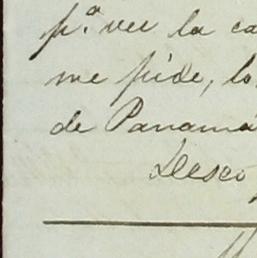 p.ª ver la ca
me pide, lo
de Panamá
Deseo